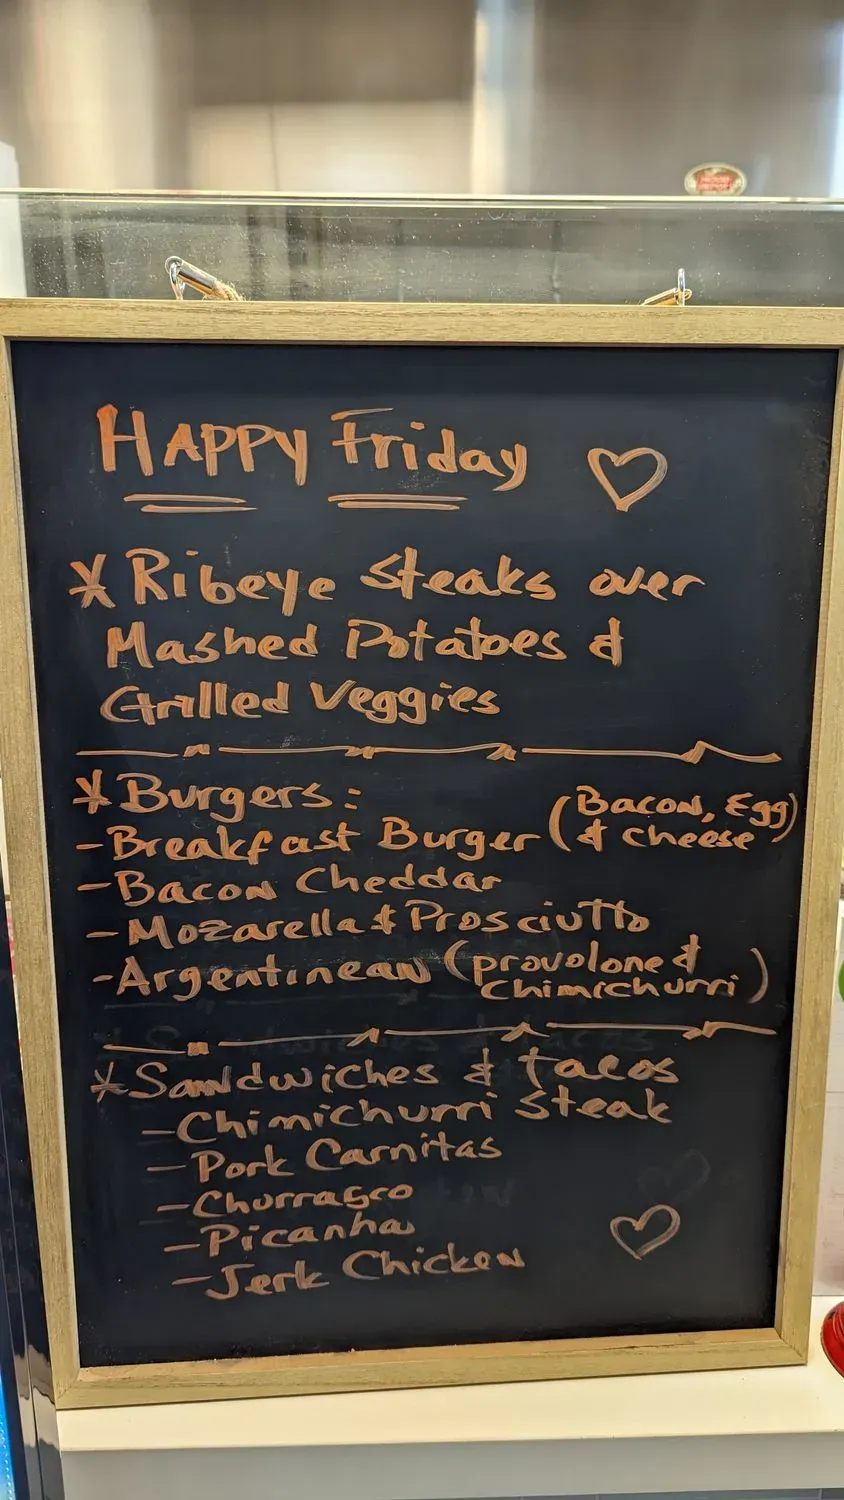 HAPPY Friday
* Ribeye steaks over
Mashed Potatoes &
Grilled Veggies
* Burgers:
- Breakfast Burger (Bacon, Egg
& cheese)
- Bacon Cheddar
- Mozarella & Prosciutto
- Argentinean (provolone &
chimichurri)
* Sandwiches & tacos
- Chimichurri steak
- Pork Carnitas
- Churrasco
- Picanha
- Jerk Chicken